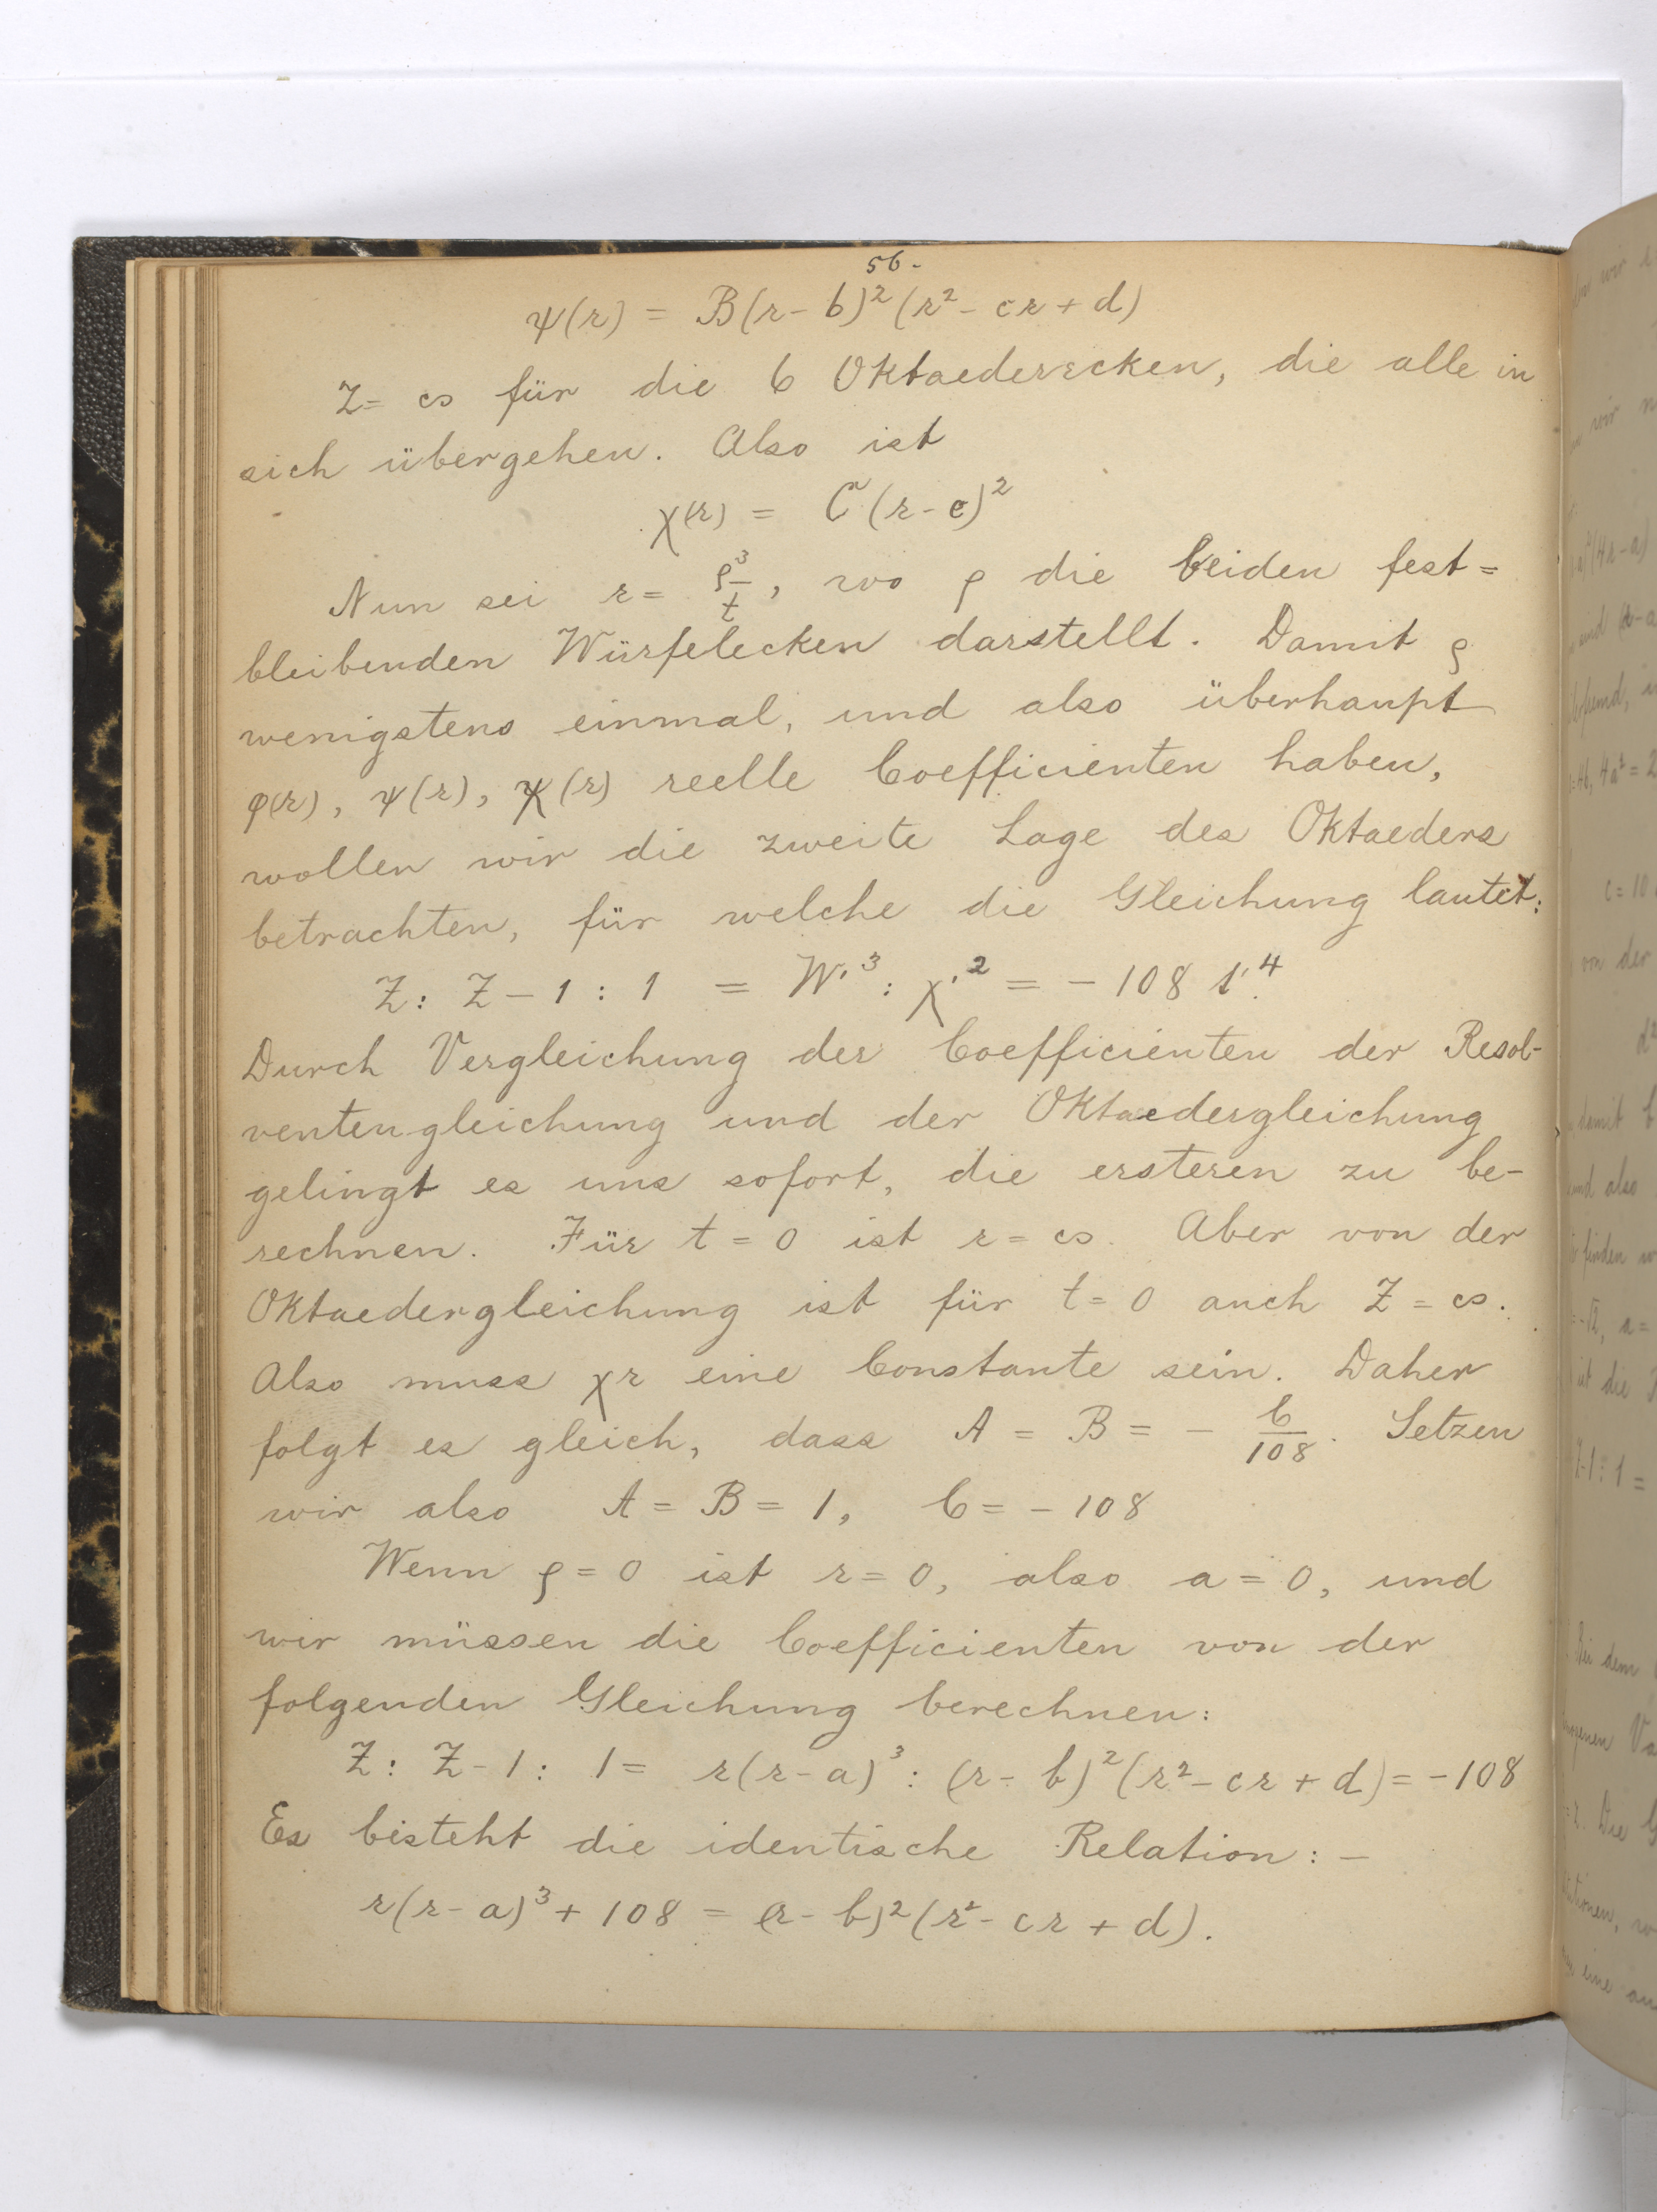 56.
ψ(r) = B(r-b)²(r²-cr+d)
Z= ∞ für die 6 Oktaederecken, die alle in
sich übergehen. Also ist
χ(r) = C(r-e)²
Nun sei r= ρ³/t, wo ρ die beiden fest=
bleibenden Würfelecken darstellt. Damit ρ
wenigstens einmal, und also überhaupt
φ(r), ψ(r), χ(r) reelle Coefficienten haben,
wollen wir die zweite Lage des Oktaeders
betrachten, für welche die Gleichung lautet:
Z: Z-1 : 1 = W'³ : χ'² = -108 t'⁴.
Durch Vergleichung der Coefficienten der Resol-
ventengleichung und der Oktaedergleichung
gelingt es uns sofort, die ersteren zu be-
rechnen. Für t=0 ist r=∞. Aber von der
Oktaedergleichung ist für t=0 auch Z=∞.
Also muss χr eine Constante sein. Daher
folgt es gleich, dass A = B = - C/108. Setzen
wir also A = B = 1, C = -108
Wenn ρ=0 ist r=0, also a=0, und
wir müssen die Coefficienten von der
folgenden Gleichung berechnen:
Z: Z-1: 1= r(r-a)³ : (r-b)²(r²-cr+d)=-108
Es bisteht die identische Relation: -
r(r-a)³+108 = (r-b)²(r²-cr+d).